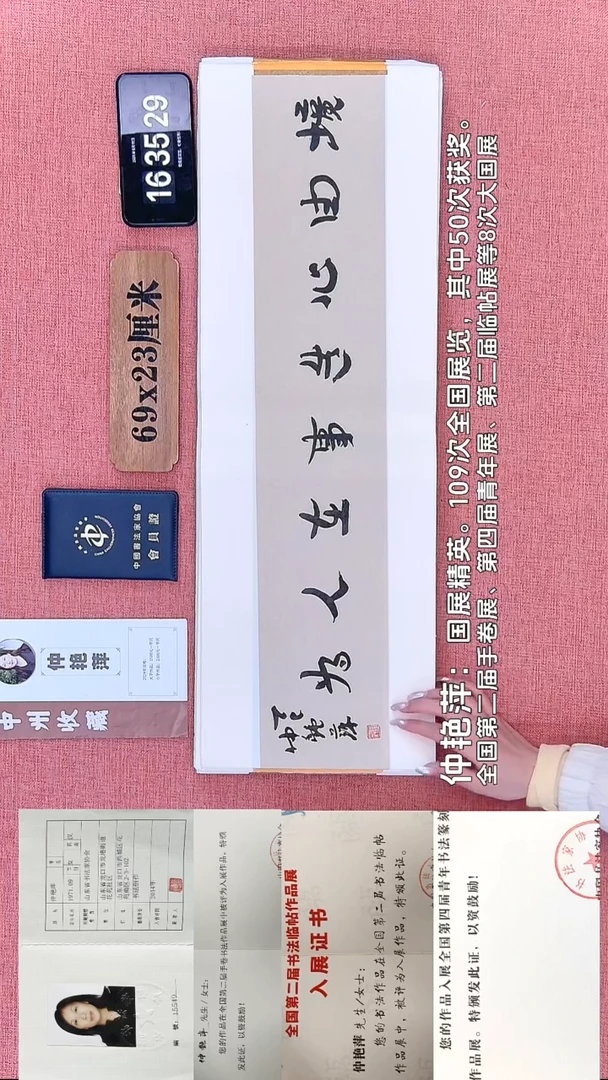 16 35 29
69x23厘米
中國書法家協會
會員證
仲艳萍
中州收藏
境由心造事在人为
仲艳萍
仲艳萍：国展精英。109次全国展览，其中50次获奖。
全国第二届手卷展、第四届青年展、第二届临帖展等8次大国展
仲艳萍 先生/女士：
您的作品在全国第二届手卷书法作品展中被评为入展作品，特颁
发此证，以资鼓励！
全国第二届书法临帖作品展
入展证书
仲艳萍 先生/女士：
您的书法作品在全国第二届书法临帖
作品展中，被评为入展作品，特颁此证。
您的作品入展全国第四届青年书法篆刻
作品展。特颁发此证，以资鼓励！